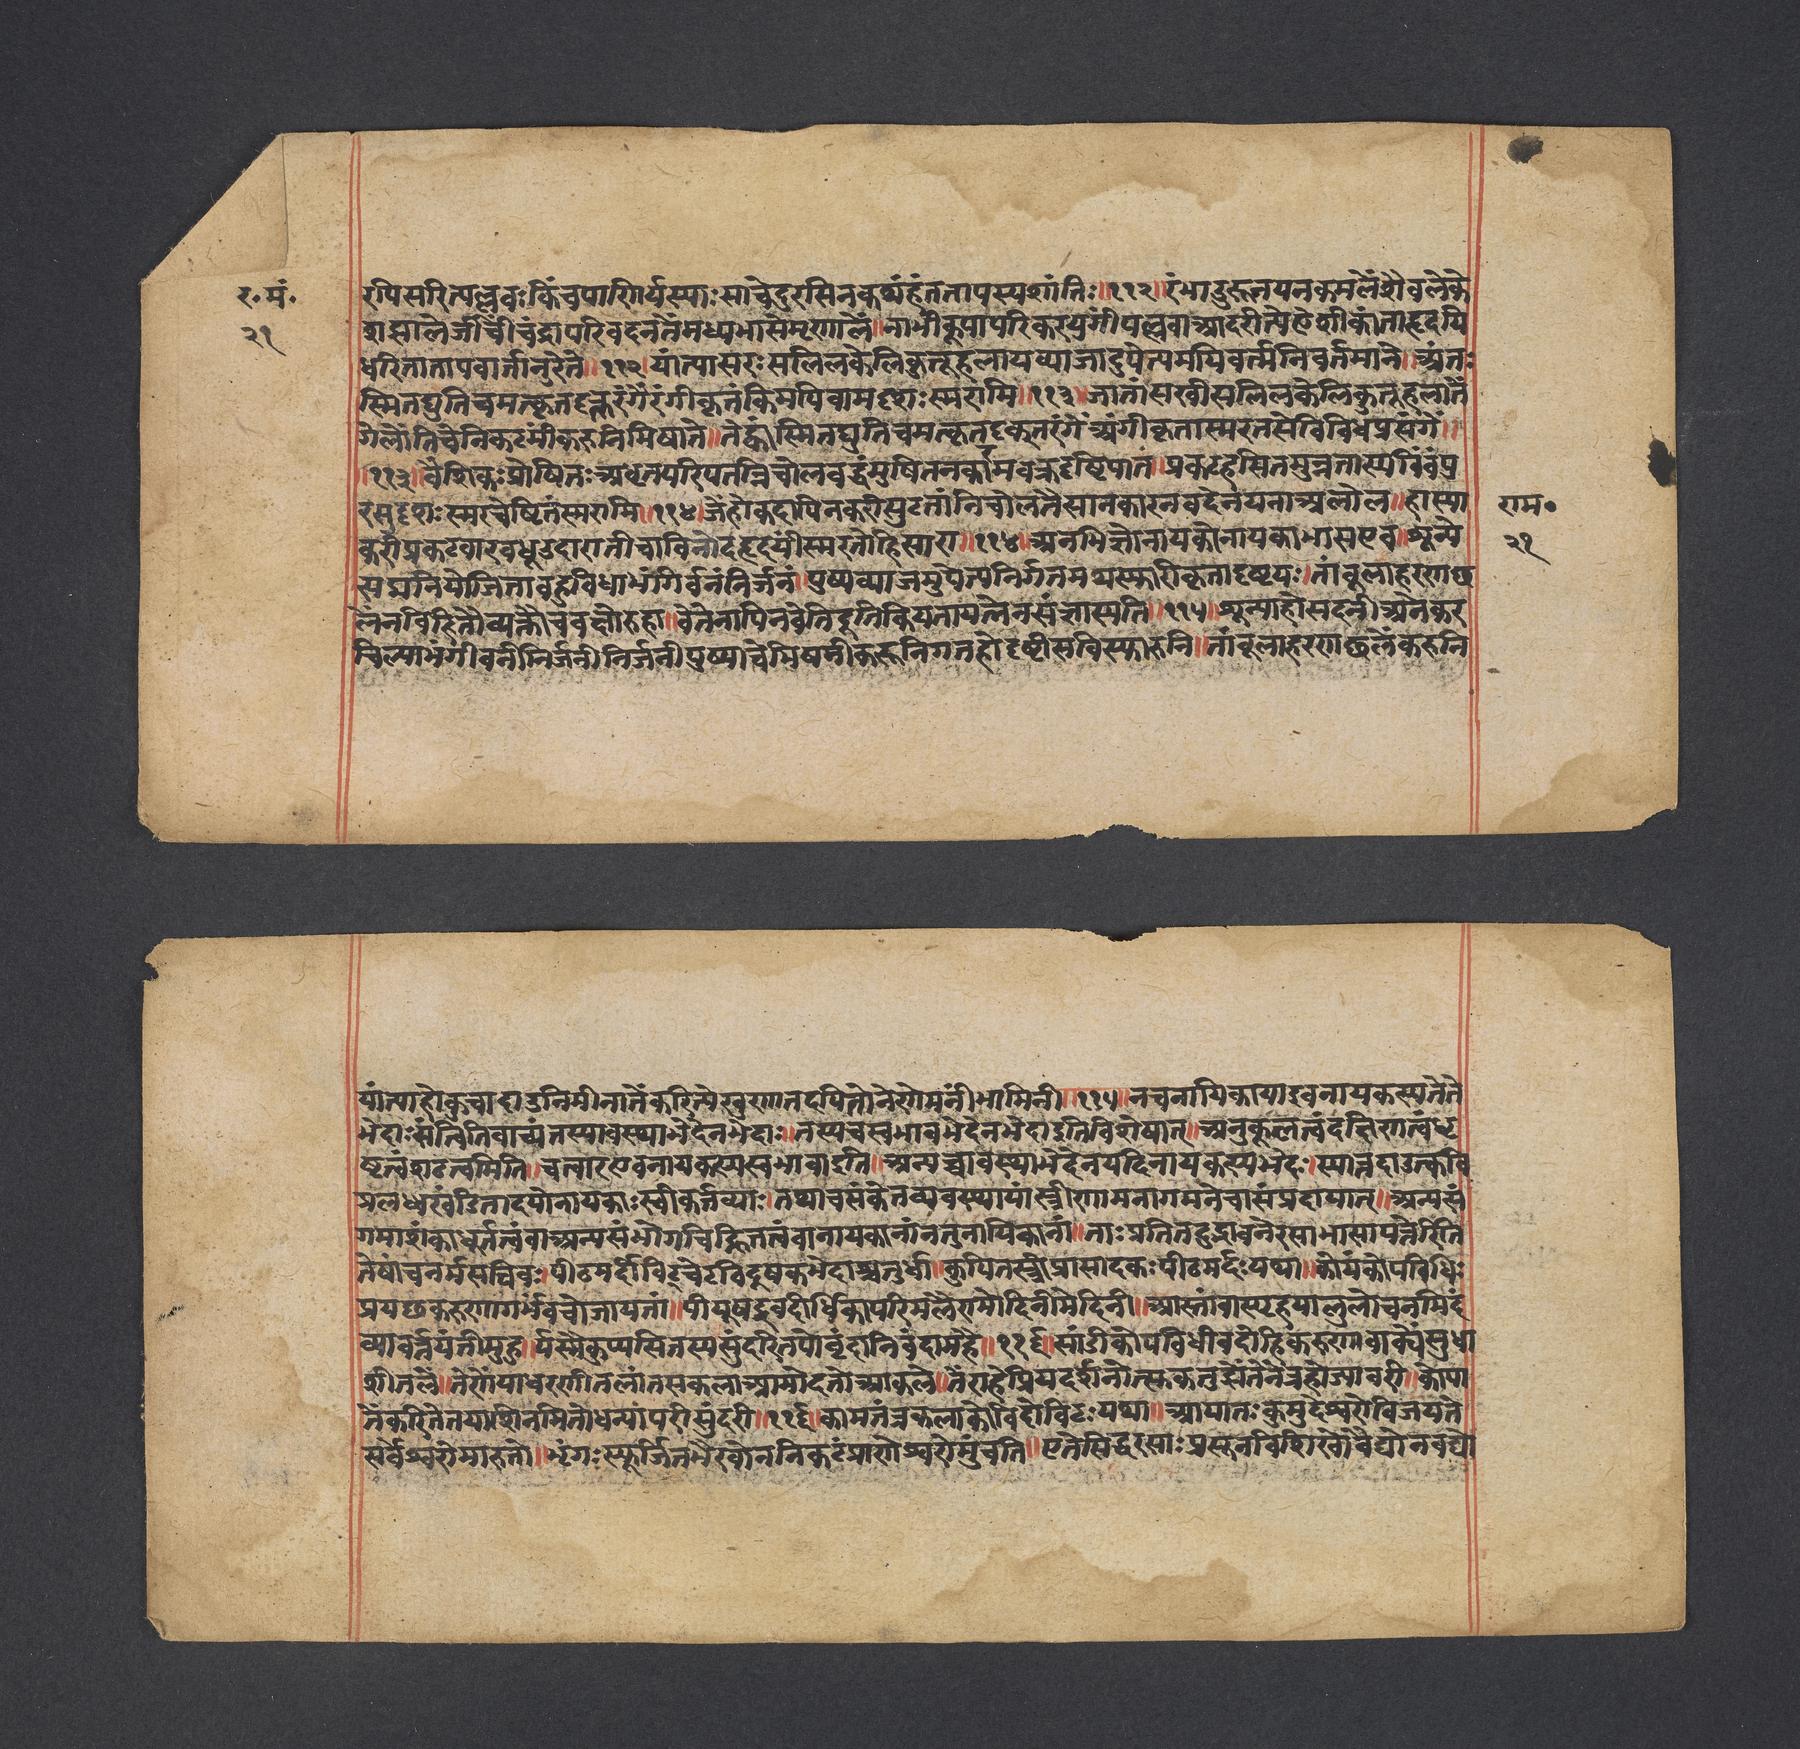 र॰मं॰
२१
रपिसरित्पल्लवः किंचपाणिर्यस्याः साचेदुरसिनकथंहंततापस्यशांतिः॥११२॥रंभाउरूनयनकमलेंशैवलेकें
शझालेजींचीचंद्रापरिवदनतेंमध्यभासेमृणालें॥नाभीकूपापरिकरयुगींपल्लवाआदरीत्येठेलीकांताहृदयि
धरितातापवार्तानुरेते॥११२॥यांत्यासरःसलिलकेलिकुतूहलायव्याजादुपेत्यमयिवर्त्मनिवर्तमाने॥अंतः
स्मितद्युतिचमत्कृतदृक्तरंगैरंगीकृतंकिमपिवामदृशःस्मरामि॥११३॥जातांसखीसलिलकेलिकुतूहलातें
गेलोंतिचेनिकटमींकरुनिमिषातें॥तेव्हांस्मितद्युतिचमत्कृतदृक्तरंगें अंगीकृतास्मरतसेंविविधप्रसंगें॥
॥११३॥वैशिकःप्रोषितःअधृतपरिपतन्निचोलबद्धंमुषितनर्क्कामवक्रदृष्टिपातं॥प्रकटहसितमुन्नतास्यबिंबंपु
रसुदृशःस्मरचेष्टितंस्मरामि॥११४॥जेंहोकदापिनकरीसुटतांनिचोलंतैसानकारनवदेनयनाअलोल॥हास्या
करीप्रकटवारवधूउदारातीचाविनोदहृदयींस्मरतोहिसारा॥११४॥अनभिज्ञोनायकोनायकाभासएव॥शून्ये
सद्मनियोजिताबहुविधाभंगिर्वनंनिर्जनं॥पुष्पव्याजमुपेत्यनिर्गतमथस्फारीकृतादृष्टयः॥तांबूलाहरणछ
लेनविहितौव्यक्तौचवक्षोरुहा॥वेतेनापिनवेत्तिदूतिकियतायत्नेनसंज्ञास्यति॥११५॥शून्याहोसदनीअनेकर
चिल्याभंगीवनींनिर्जनींनिर्जनींपुष्पाचेंमिषमीकरूनिगतहोदृष्टीसविस्फारुनि॥तांबूलाहरणाछलेंकरुनि
राम॰
२१
यांत्याहोकुचादाउनिमीनातेंकरित्येखुणातदपितोनेणेमनींभामिनी॥११५॥नचनायिकायाइवनायकस्यतेते
भेदाःसंत्वितिवाच्यंतस्यावस्थाभेदेनभेदाः॥तस्यचस्वभावभेदेनभेदाइतिविशेषात्॥अनुकूलत्वंदक्षिणत्वंधृ
ष्टत्वंशठत्वमिति॥चत्वारएवनायकस्यस्वभावाइति॥अन्यच्चावस्थाभेदेनयदिनायकस्यभेदः॥स्यात्तदाउत्कवि
प्रलब्धखंडितादयोनायकाःस्वीकर्तव्याः॥तथाचसंकेतव्यवस्थायांस्त्रीणामनागमनेचासंप्रदायात्॥अन्यसं
गमाशंकाधूर्तत्वंवाअन्यसंभोगचिह्नितत्वंवानायकानांनतुनायिकानां॥ताःप्रतितदुद्भावनेरसाभासापत्तेरिति
तेषांचनर्मसचिवः॥पीठमर्दोविटचेटविदूषकभेदाच्चतुर्धा॥कुपितस्त्रीप्रासादकःपीठमर्दःयथा॥कोयंकोपविधिः
प्रयछकरुणागर्भंवचोजायतां॥पीयूषद्रवदीर्घिकापरिमलैरामोदिनीमेदिनी॥आस्तांवास्पृहयालुलोचनमिदं
व्यावर्तयंतीमुहुर्॥यस्मैकुप्यसितस्यसुंदरितपोवृंदानिवंदामहे॥११६॥सांडीकोपविधीवदींहिकरुणावाक्येंसुधा
शीतलें॥तेणेंयाधरणीतलांतसकलाआमोदतोआकले॥तेंराहेप्रियदर्शनोत्सकतुझेंतेनेत्रहोआवरी॥कोपा
तेंकरितेतयाशिनमितोधन्यांपरीसुंदरी॥११६॥कामतंत्रकलाकोविदोविटःयथा॥आयातःकुमुदेश्वरोविजयते
सर्वेश्वरोमारुतो॥भृंगःस्फूर्जितभैरवोननिकटंप्राणेश्वरोमुंचति॥एतेसिद्धरसाःप्रसूनविशिखोवैद्योनवद्यो